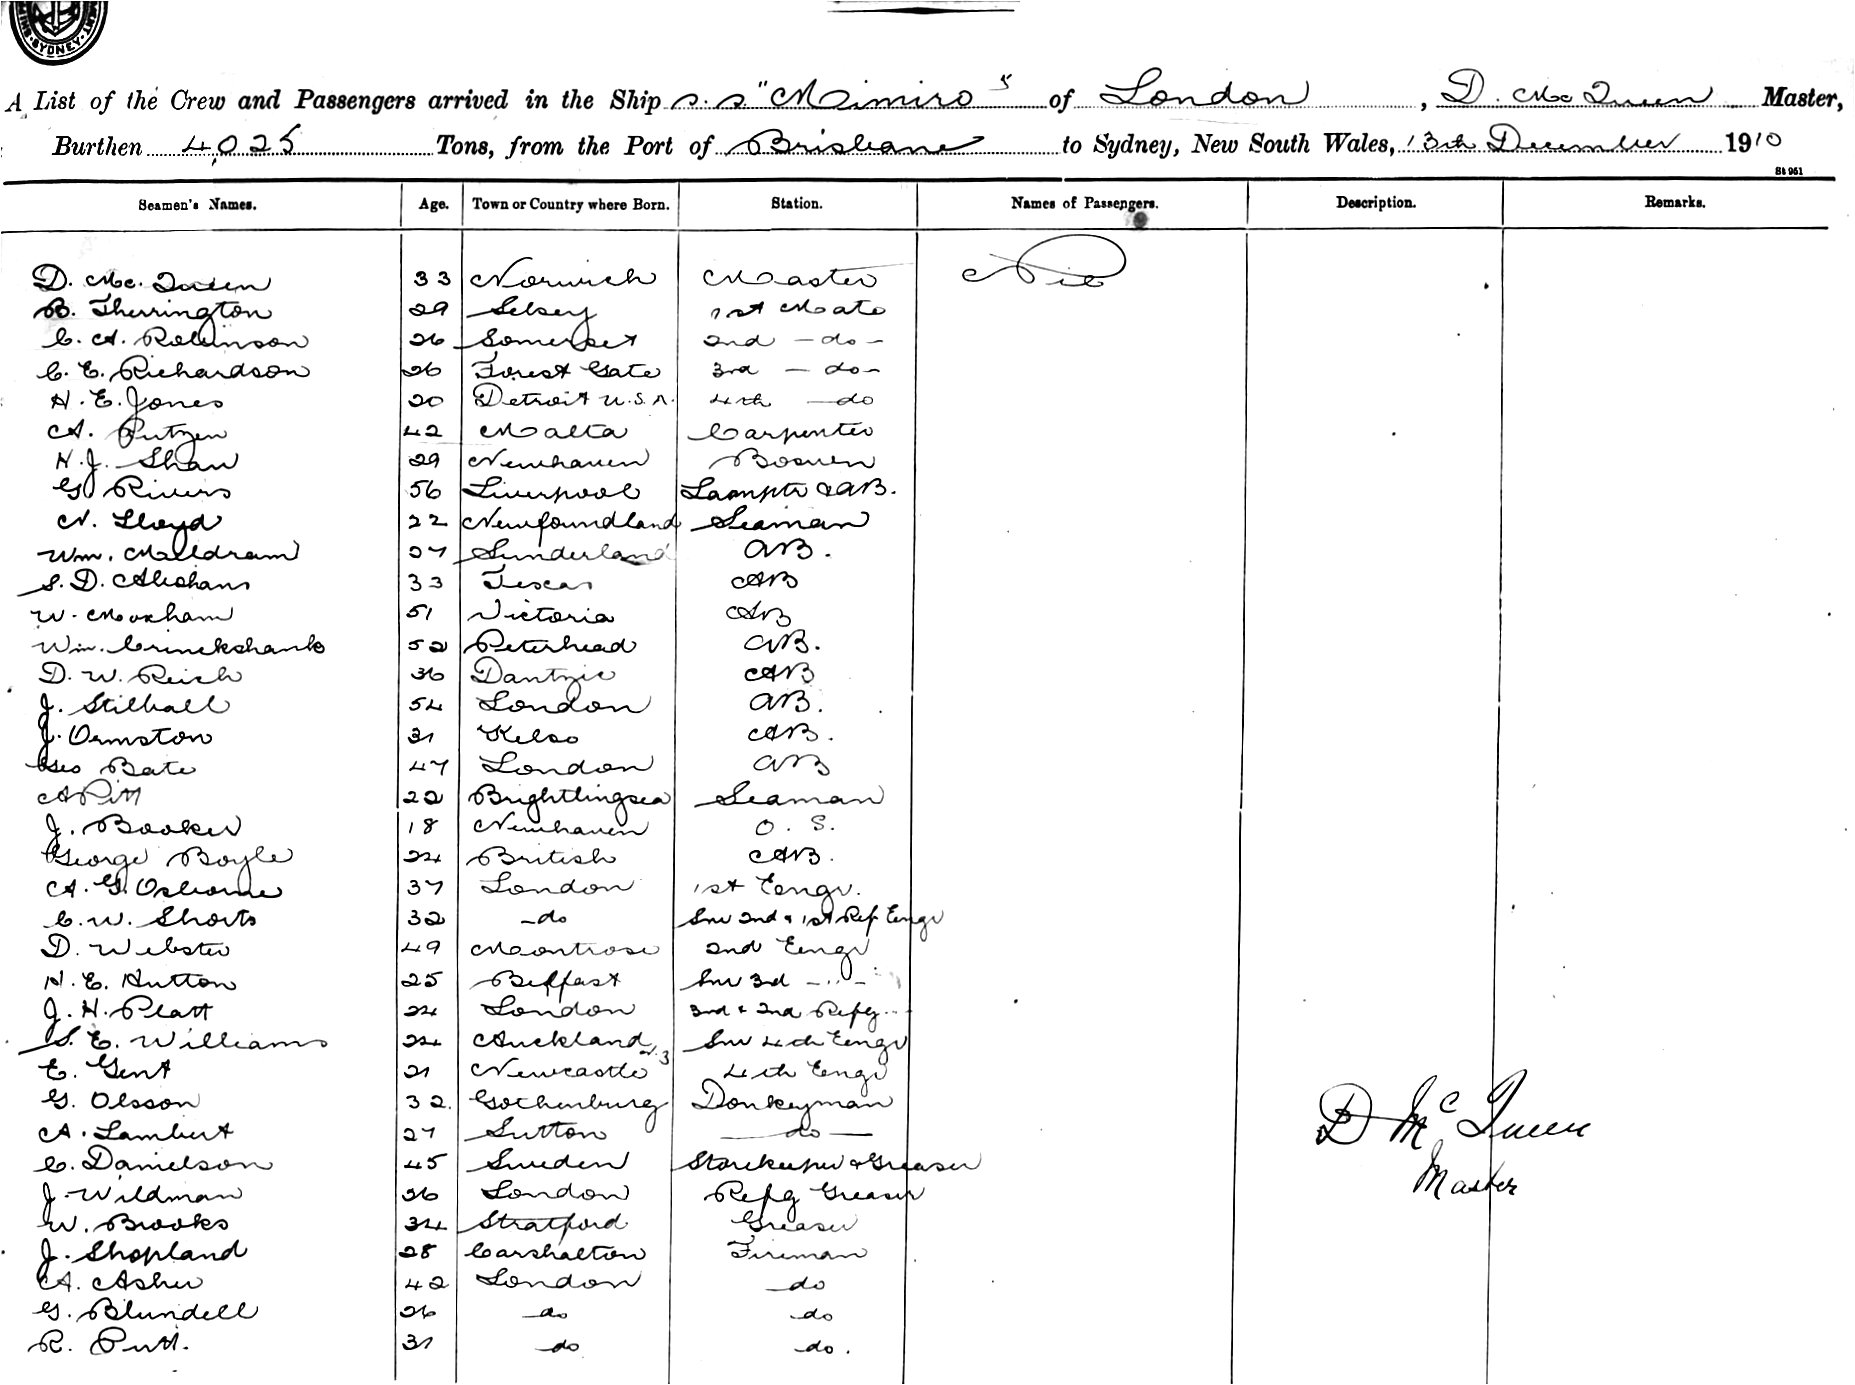 SYDNEY
A List of the Crew and Passengers arrived in the Ship s.s. "Mimiro" of London, D. McQueen Master,
Burthen 4,025 Tons, from the Port of Brisbane to Sydney, New South Wales, 13th December 1910
St 951
Seamen's Names. Age. Town or Country where Born. Station. Names of Passengers. Description. Remarks.
D. Mc. Queen 33 Norwich Master Nil
B. Therrington 29 Selsey 1st Mate
C. A. Robinson 26 Somerset 2nd - do -
C. E. Richardson 26 Forest Gate 3rd - do -
H. E. Jones 20 Detroit U.S.A. 4th - do
A. 42 Malta Carpenter
H. J. Shaw 29 Newhaven Bosuen
G Rivers 56 Liverpool Lamptr & AB.
N. Lloyd 22 Newfoundland Seaman
Wm. Meldram 27 Sunderland AB.
S. D. 33 Texas AB
W. Moxham 51 Victoria AB
Wm. Crinckshank 52 Peterhead AB.
D. W. Reich 36 Dantzic AB
J. Stilball 54 London AB.
J. Ormston 31 Kelso AB.
Geo Bate 47 London AB
A Pitt 22 Brightlingsea Seaman
J. Booker 18 Newhaven O. S.
George Boyle 24 British AB.
A. G. Osborne 37 London 1st Eengr.
C. W. Shorts 32 - do Snr 2nd & 1st Ref Eengr
D. Webster 49 Montrose 2nd Eengr
H. E. Hutton 25 Belfast Snr 3rd - " -
J. H. Platt 24 London 3rd & 2nd Refg "
S. E. Williams 24 Auckland N.Z Snr 4th Eengr
E. Gent 21 Newcastle 4th Eengr
G. Olsson 32. Gothenburg Donkeyman
A. Lambert 27 Sutton - do -
C. Danielson 45 Sweden Storekeeper & Greaser
J. Wildman 26 London Refg Greaser
W. Brooks 34 Stratford Greaser
J. Shopland 28 Carshalton Fireman
A. Asher 42 London do
G. Blundell 26 do do
R. Putt. 31 do do.
D McQueen
Master